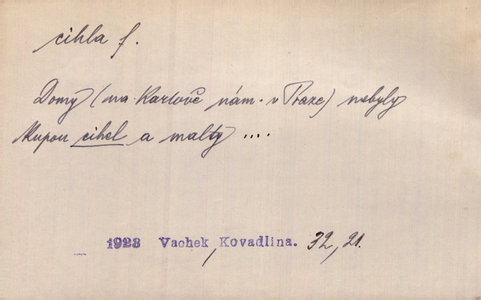 cihla f.
Domy (na Karlově nám. v Praze) nebyly
kupou cihel a malty ....
1923 Vachek, Kovadlina. 32, 21.